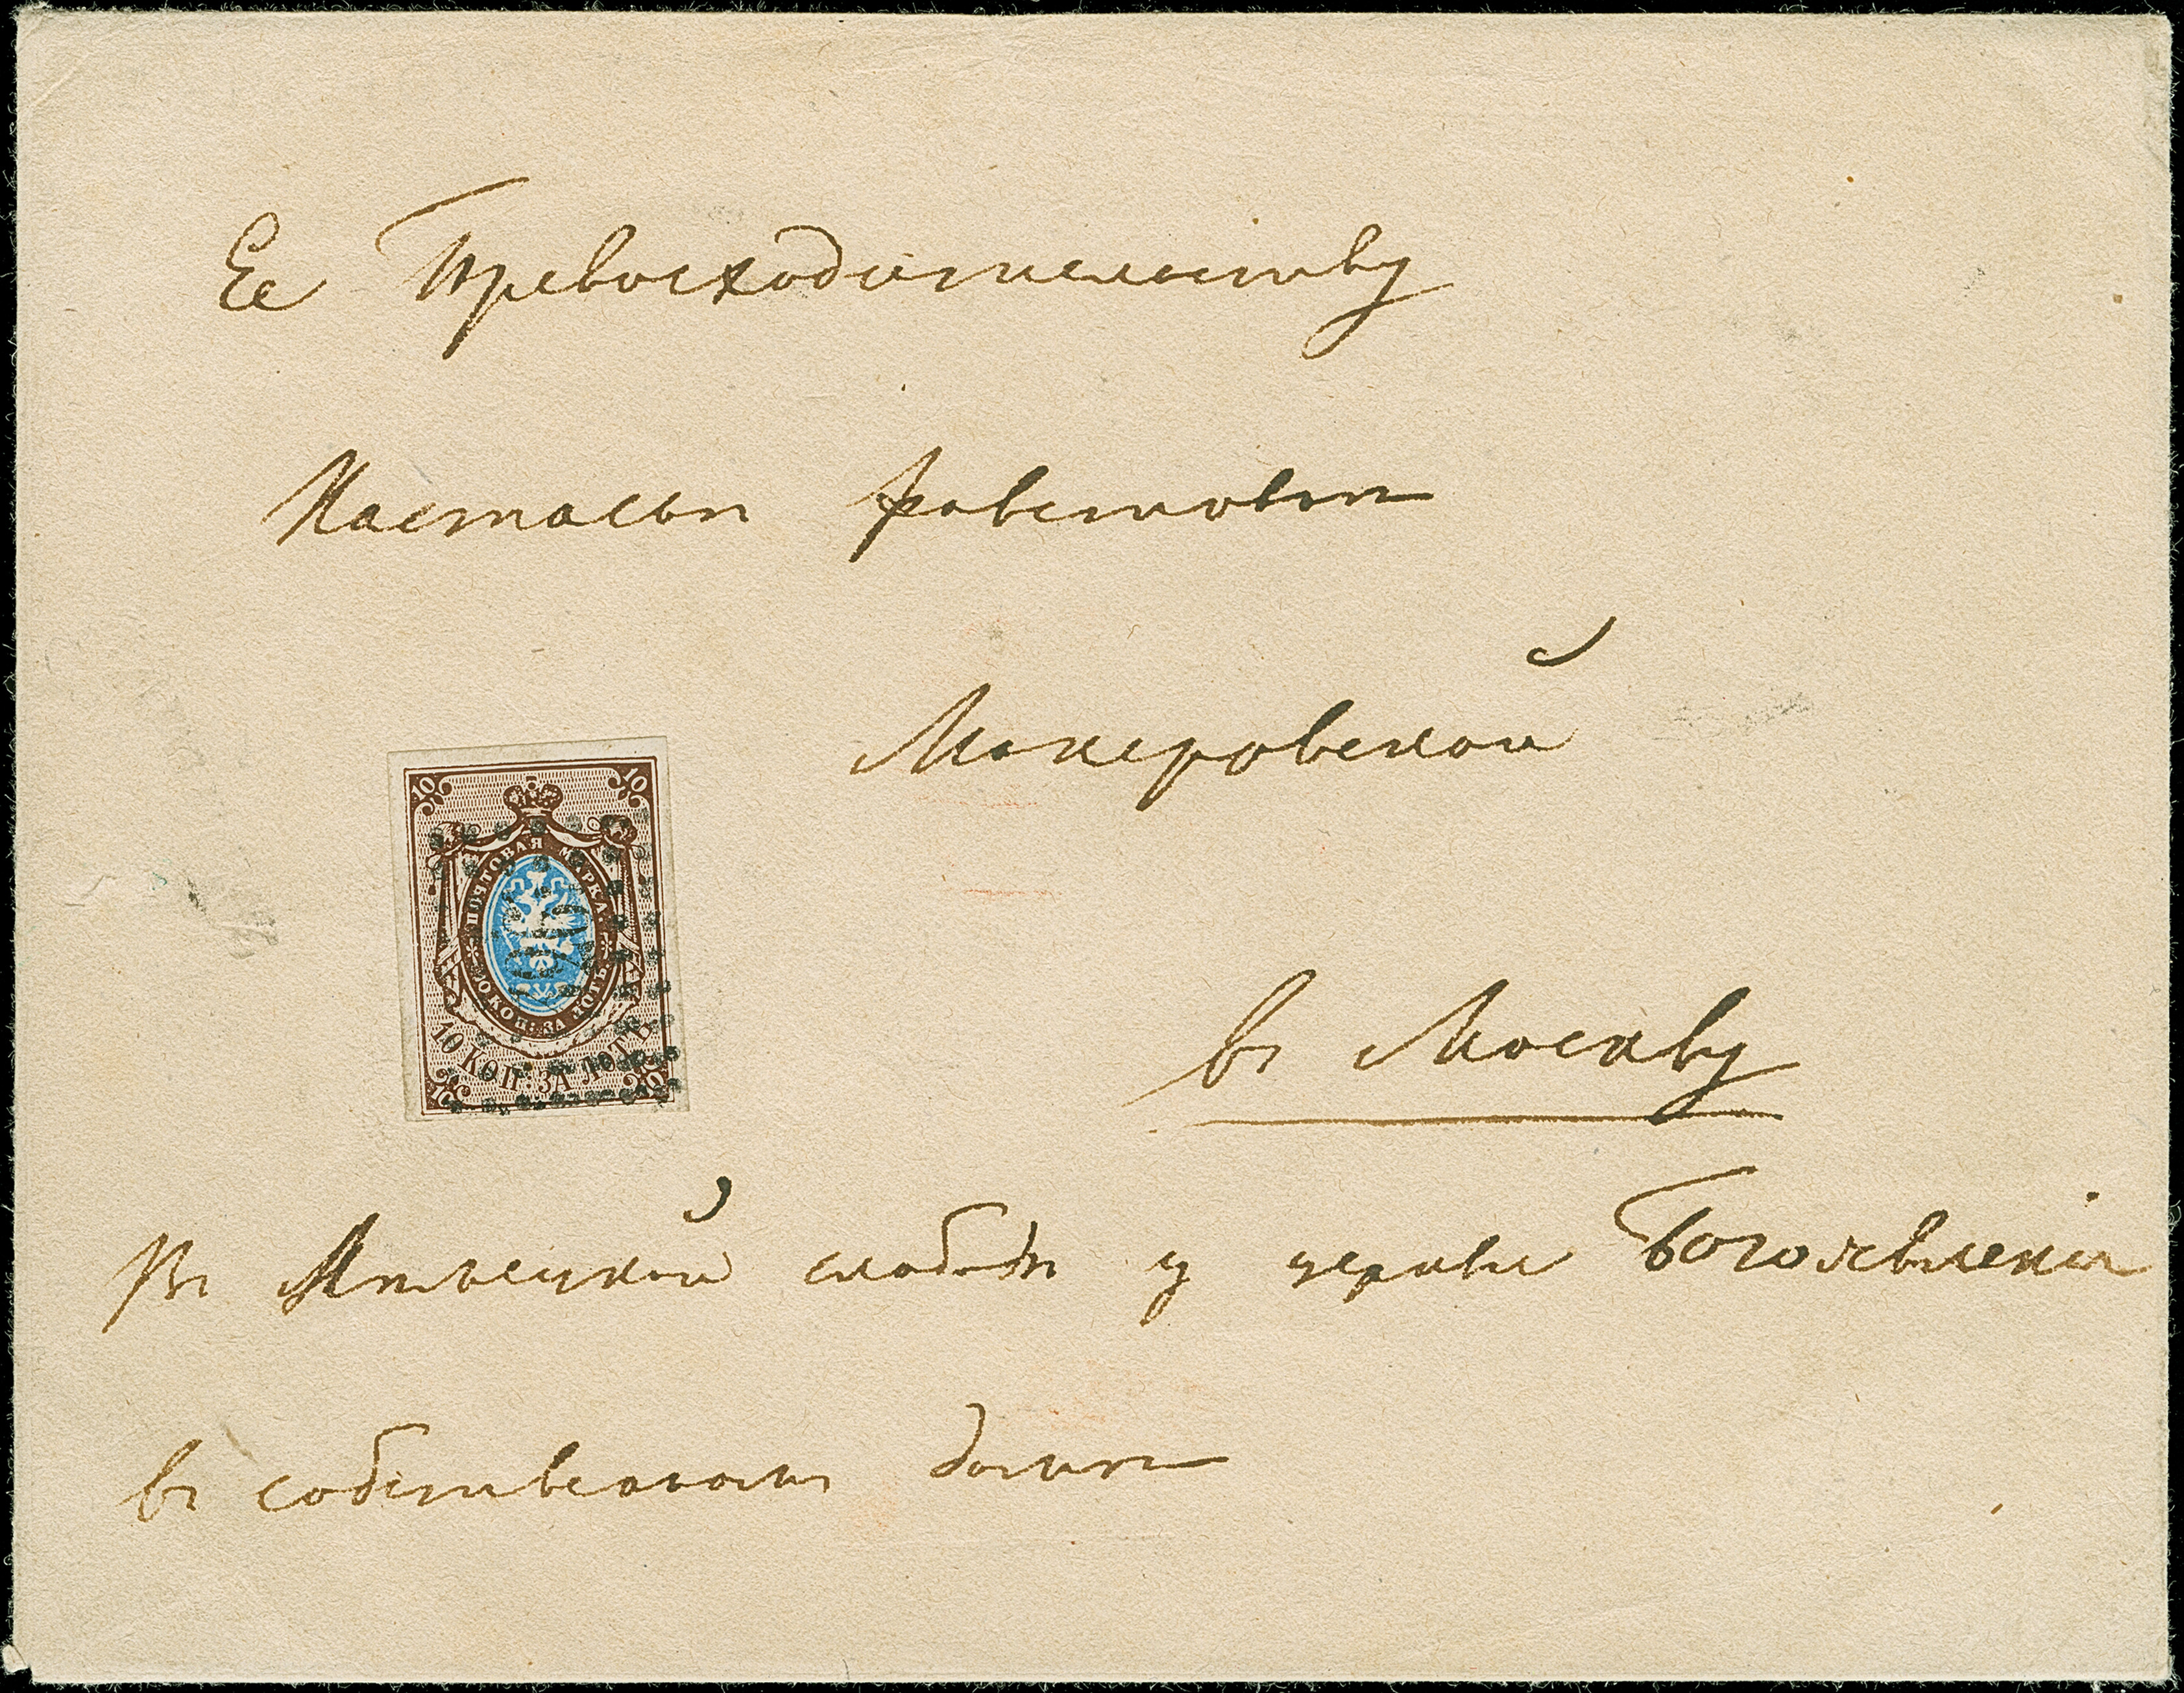 Ее Превосходительству
Настасьѣ Фавстовнѣ
Макеровской
10 10
ПОЧТОВАЯ МАРКА
10 КОП: ЗА ЛОТЪ
10 КОП: ЗА ЛОТЪ
10 10
въ Москву
Въ слободѣ у церкви Богоявленія
въ собственномъ домѣ